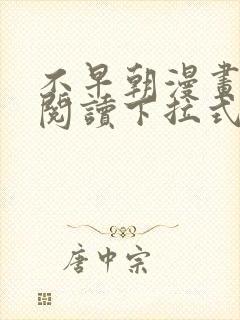 不早朝漫畫
閱讀下拉式
唐中宗